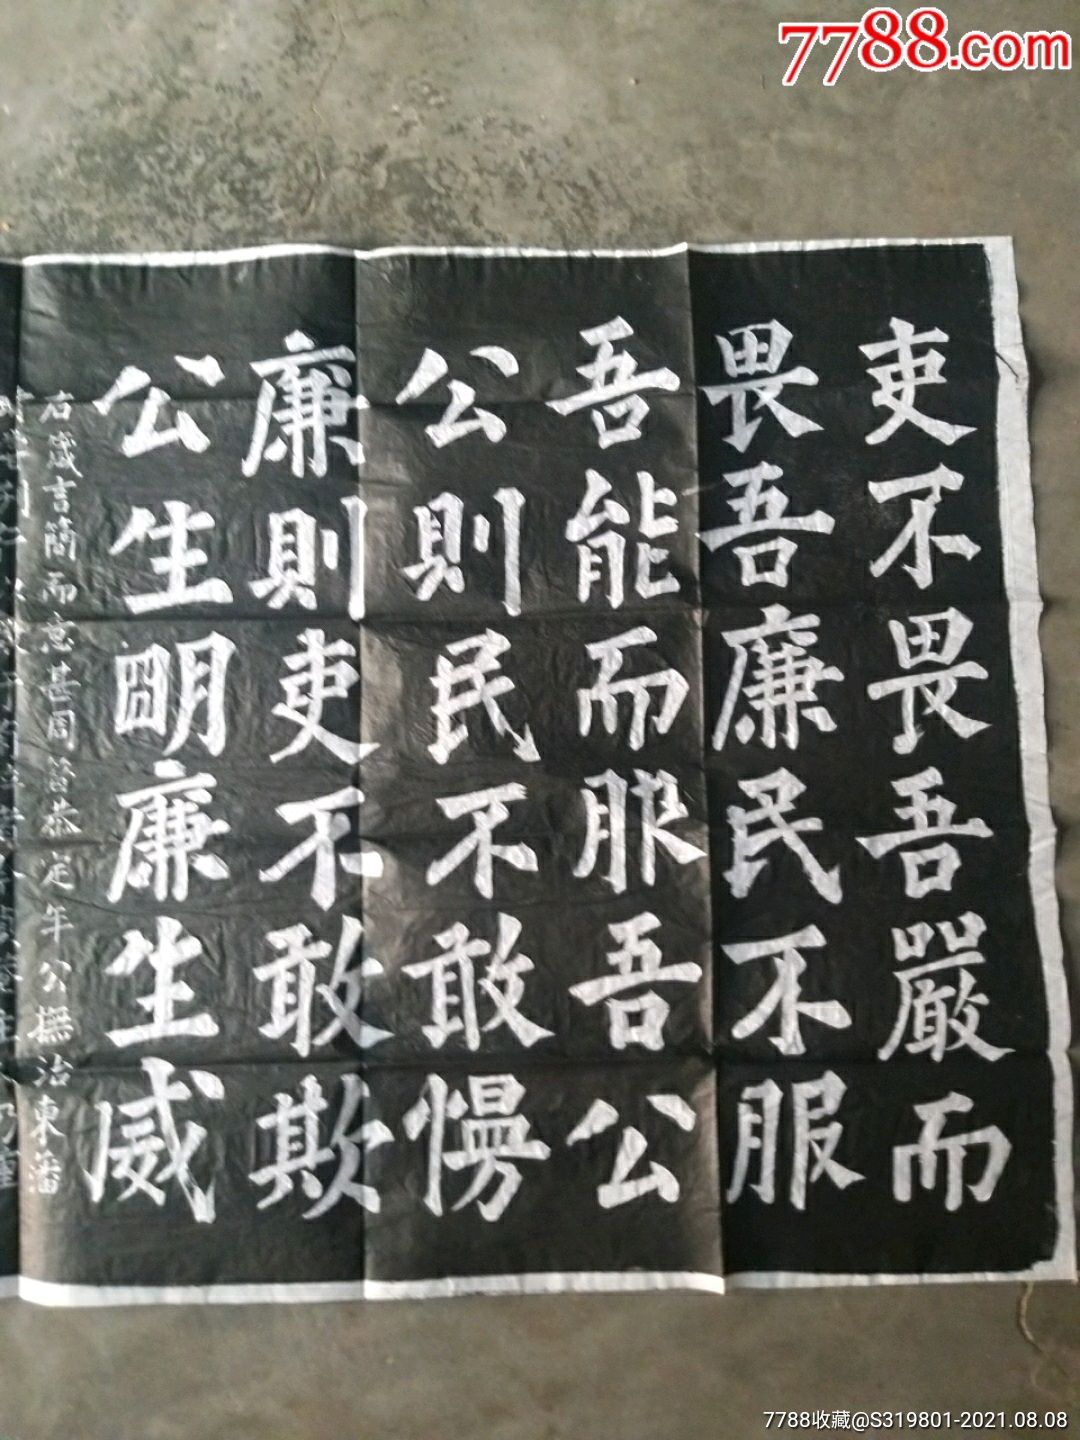 7788.com
吏不畏吾嚴而
畏吾廉民不服
吾能而服吾公
公則民不敢慢
廉則吏不敢欺
公生明廉生威
右箴言簡而意甚周昔恭定年公撫治東藩
7788收藏@S319801-2021.08.08